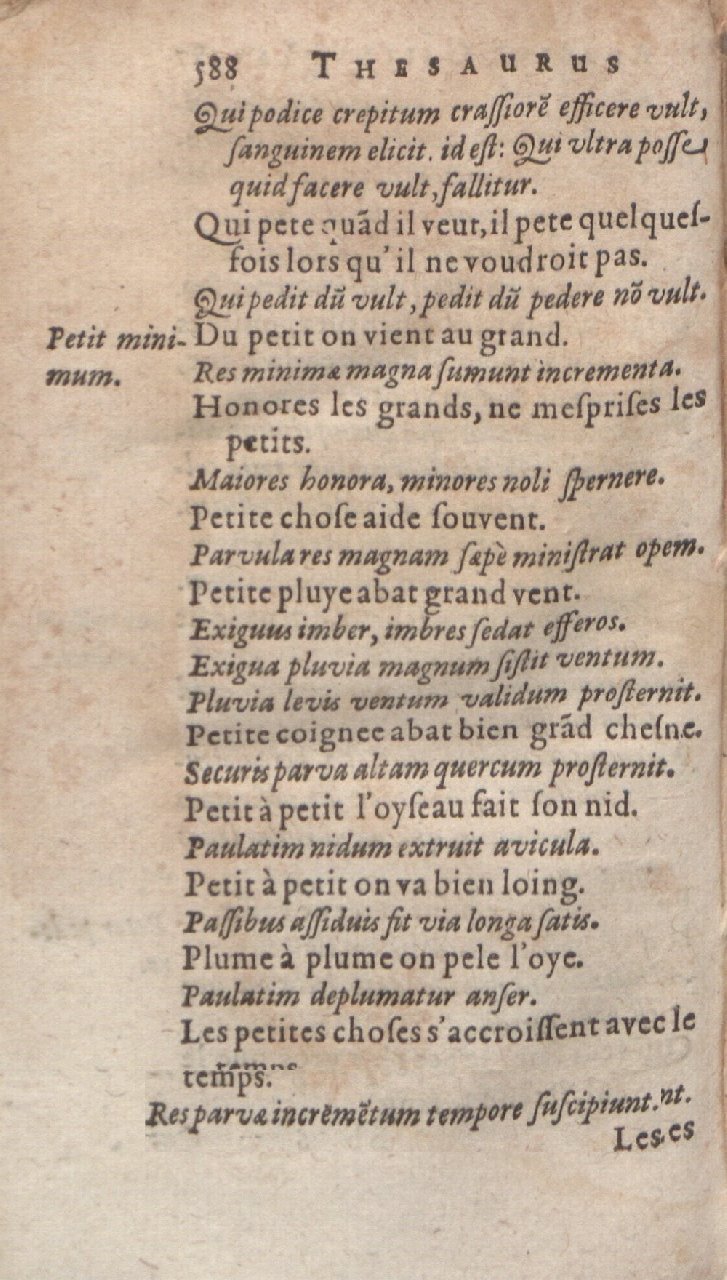 588 THESAURUS
Qui podice crepitum craſſiorẽ efficere vult,
ſanguinem elicit. id eſt: Qui vltra poſſe
quid facere vult, fallitur.
Qui pete quãd il veut, il pete quelqueſ-
fois lors qu'il ne voudroit pas.
Qui pedit dũ vult, pedit dũ pedere nõ vult.
Petit mini-
mum.
Du petit on vient au grand.
Res minimæ magna ſumunt incrementa.
Honores les grands, ne meſpriſes les
petits.
Maiores honora, minores noli ſpernere.
Petite choſe aide ſouvent.
Parvula res magnam ſæpè miniſtrat opem.
Petite pluye abat grand vent.
Exiguus imber, imbres ſedat efferos.
Exigua pluvia magnum ſiſtit ventum.
Pluvia levis ventum validum proſternit.
Petite coignee abat bien grãd cheſne.
Securis parva altam quercum proſternit.
Petit à petit l'oyſeau fait ſon nid.
Paulatim nidum extruit avicula.
Petit à petit on va bien loing.
Paſſibus aſſiduis fit via longa ſatis.
Plume à plume on pele l'oye.
Paulatim deplumatur anſer.
Les petites choſes s'accroiſſent avec le
temps.
Res parvæ incrẽmẽtum tempore ſuſcipiunt.
Les